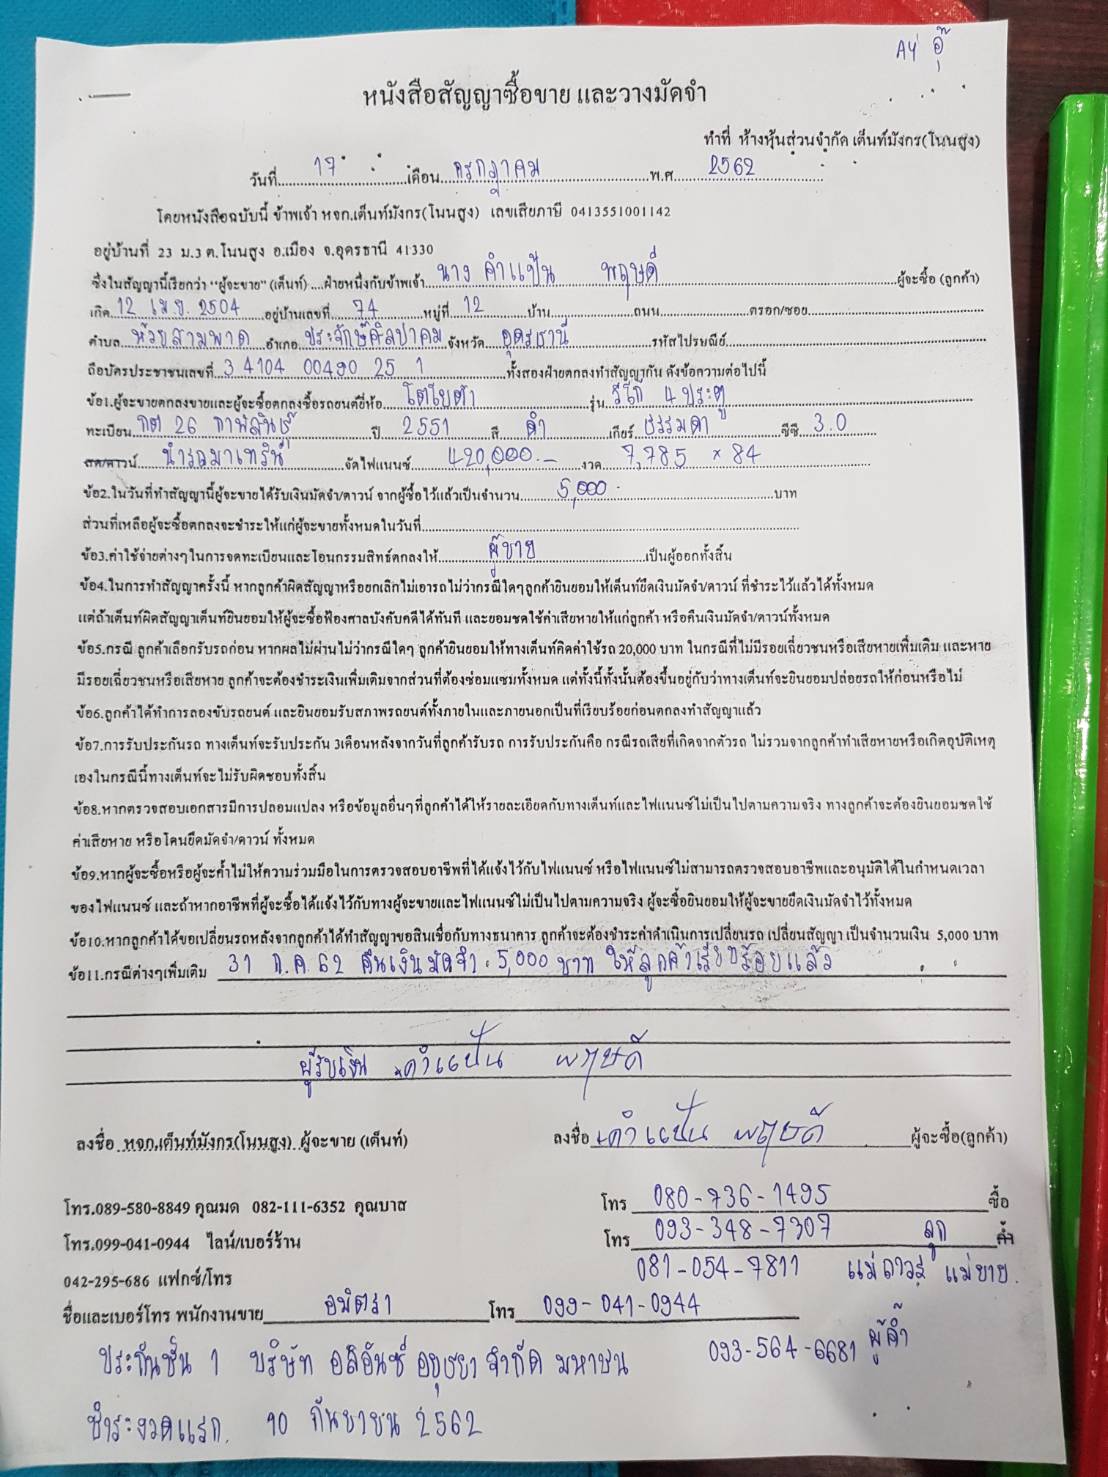 AY อุ๊
หนังสือสัญญาซื้อขาย และวางมัดจำ
ทำที่ ห้างหุ้นส่วนจำกัด เต็นท์มังกร(โนนสูง)
วันที่ 17 เดือน กรกฎาคม พ.ศ. 2562
โดยหนังสือฉบับนี้ ข้าพเจ้า หจก.เต็นท์มังกร(โนนสูง) เลขเสียภาษี 0413551001142
อยู่บ้านที่ 23 ม.3 ต.โนนสูง อ.เมือง จ.อุดรธานี 41330
ซึ่งในสัญญานี้เรียกว่า "ผู้จะขาย" (เต็นท์) ....ฝ่ายหนึ่งกับข้าพเจ้า นาง คำแปัน พฤษดี ผู้จะซื้อ (ลูกค้า)
เกิด 12 เม.ย. 2504 อยู่บ้านเลขที่ 74 หมู่ที่ 12 บ้าน ถนน ตรอก/ซอย
ตำบล ห้วยสามพาด อำเภอ ประจักษ์ศิลปาคม จังหวัด อุดรธานี รหัสไปรษณีย์
ถือบัตรประชาชนเลขที่ 3 4104 00490 25 1 ทั้งสองฝ่ายตกลงทำสัญญากัน ดังข้อความต่อไปนี้
ข้อ1.ผู้จะขายตกลงขายและผู้จะซื้อตกลงซื้อรถยนต์ยี่ห้อ โตโยต้า รุ่น วีโก้ 4 ประตู
ทะเบียน กต 26 กาฬสินธุ์ ปี 2551 สี ดำ เกียร์ ธรรมดา ซีซี 3.0
สด/ดาวน์ นำรถมาเทรินี จัดไฟแนนซ์ 420,000.- งวด 7,785 × 84
ข้อ2.ในวันที่ทำสัญญานี้ผู้จะขายได้รับเงินมัดจำ/ดาวน์ จากผู้ซื้อไว้แล้วเป็นจำนวน 5,000 บาท
ส่วนที่เหลือผู้จะซื้อตกลงจะชำระให้แก่ผู้จะขายทั้งหมดในวันที่
ข้อ3.ค่าใช้จ่ายต่างๆในการจดทะเบียนและโอนกรรมสิทธ์ตกลงให้ ผู้ขาย เป็นผู้ออกทั้งสิ้น
ข้อ4.ในการทำสัญญาครั้งนี้ หากลูกค้าผิดสัญญาหรือยกเลิกไม่เอารถไม่ว่ากรณีใดๆลูกค้ายินยอมให้เต็นท์ยึดเงินมัดจำ/ดาวน์ ที่ชำระไว้แล้วได้ทั้งหมด
แต่ถ้าเต็นท์ผิดสัญญาเต็นท์ยินยอมให้ผู้จะซื้อฟ้องศาลบังคับคดีได้ทันที และยอมชดใช้ค่าเสียหายให้แก่ลูกค้า หรือคืนเงินมัดจำ/ดาวน์ทั้งหมด
ข้อ5.กรณี ลูกค้าเลือกรับรถก่อน หากผลไม่ผ่านไม่ว่ากรณีใดๆ ลูกค้ายินยอมให้ทางเต็นท์คิดค่าใช้รถ 20,000 บาท ในกรณีที่ไม่มีรอยเฉี่ยวชนหรือเสียหายเพิ่มเติม และหาย
มีรอยเฉี่ยวชนหรือเสียหาย ลูกค้าจะต้องชำระเงินเพิ่มเติมจากส่วนที่ต้องซ่อมแซมทั้งหมด แต่ทั้งนี้ทั้งนั้นต้องขึ้นอยู่กับว่าทางเต็นท์จะยินยอมปล่อยรถให้ก่อนหรือไม่
ข้อ6.ลูกค้าได้ทำการลองขับรถยนต์ และยินยอมรับสภาพรถยนต์ทั้งภายในและภายนอกเป็นที่เรียบร้อยก่อนตกลงทำสัญญาแล้ว
ข้อ7.การรับประกันรถ ทางเต็นท์จะรับประกัน 3เดือนหลังจากวันที่ลูกค้ารับรถ การรับประกันคือ กรณีรถเสียที่เกิดจากตัวรถ ไม่รวมจากลูกค้าทำเสียหายหรือเกิดอุบัติเหตุ
เองในกรณีนี้ทางเต็นท์จะไม่รับผิดชอบทั้งสิ้น
ข้อ8.หากตรวจสอบเอกสารมีการปลอมแปลง หรือข้อมูลอื่นๆที่ลูกค้าได้ให้รายละเอียดกับทางเต็นท์และไฟแนนซ์ไม่เป็นไปตามความจริง ทางลูกค้าจะต้องยินยอมชดใช้
ค่าเสียหาย หรือโดนยึดมัดจำ/ดาวน์ ทั้งหมด
ข้อ9.หากผู้จะซื้อหรือผู้จะค้ำไม่ให้ความร่วมมือในการตรวจสอบอาชีพที่ได้แจ้งไว้กับไฟแนนซ์ หรือไฟแนนซ์ไม่สามารถตรวจสอบอาชีพและอนุมัติได้ในกำหนดเวลา
ของไฟแนนซ์ และถ้าหากอาชีพที่ผู้จะซื้อได้แจ้งไว้กับทางผู้จะขายและไฟแนนซ์ไม่เป็นไปตามความจริง ผู้จะซื้อยินยอมให้ผู้จะขายยึดเงินมัดจำไว้ทั้งหมด
ข้อ10.หากลูกค้าได้ขอเปลี่ยนรถหลังจากลูกค้าได้ทำสัญญาขอสินเชื่อกับทางธนาคาร ลูกค้าจะต้องชำระค่าดำเนินการเปลี่ยนรถ เปลี่ยนสัญญา เป็นจำนวนเงิน 5,000 บาท
ข้อ11.กรณีต่างๆเพิ่มเติม 31 ก.ค 62 คืนเงินมัดจำ 5,000 บาท ให้ลูกค้าเรียบร้อยแล้ว
ผู้รับเงิน คำแปัน พฤษดี
ลงชื่อ หจก.เต็นท์มังกร(โนนสูง) ผู้จะขาย (เต็นท์) ลงชื่อ คำแปัน พฤษดี ผู้จะซื้อ(ลูกค้า)
โทร.089-580-8849 คุณมด 082-111-6352 คุณบาส โทร 080-736-1495 ซื้อ
โทร.099-041-0944 ไลน์/เบอร์ร้าน โทร 093-348-7307 ลูก ค้ำ
042-295-686 แฟกซ์/โทร 081-054-7811 แม่ถาวร แม่ยาย
ชื่อและเบอร์โทร พนักงานขาย อมิตรา โทร 099-041-0944
ประกันชั้น 1 บริษัท อลิอันซ์ อยุธยา จำกัด มหาชน 093-564-6681 ผู้ค้ำ
ชำระงวดแรก. 10 กันยายน 2562